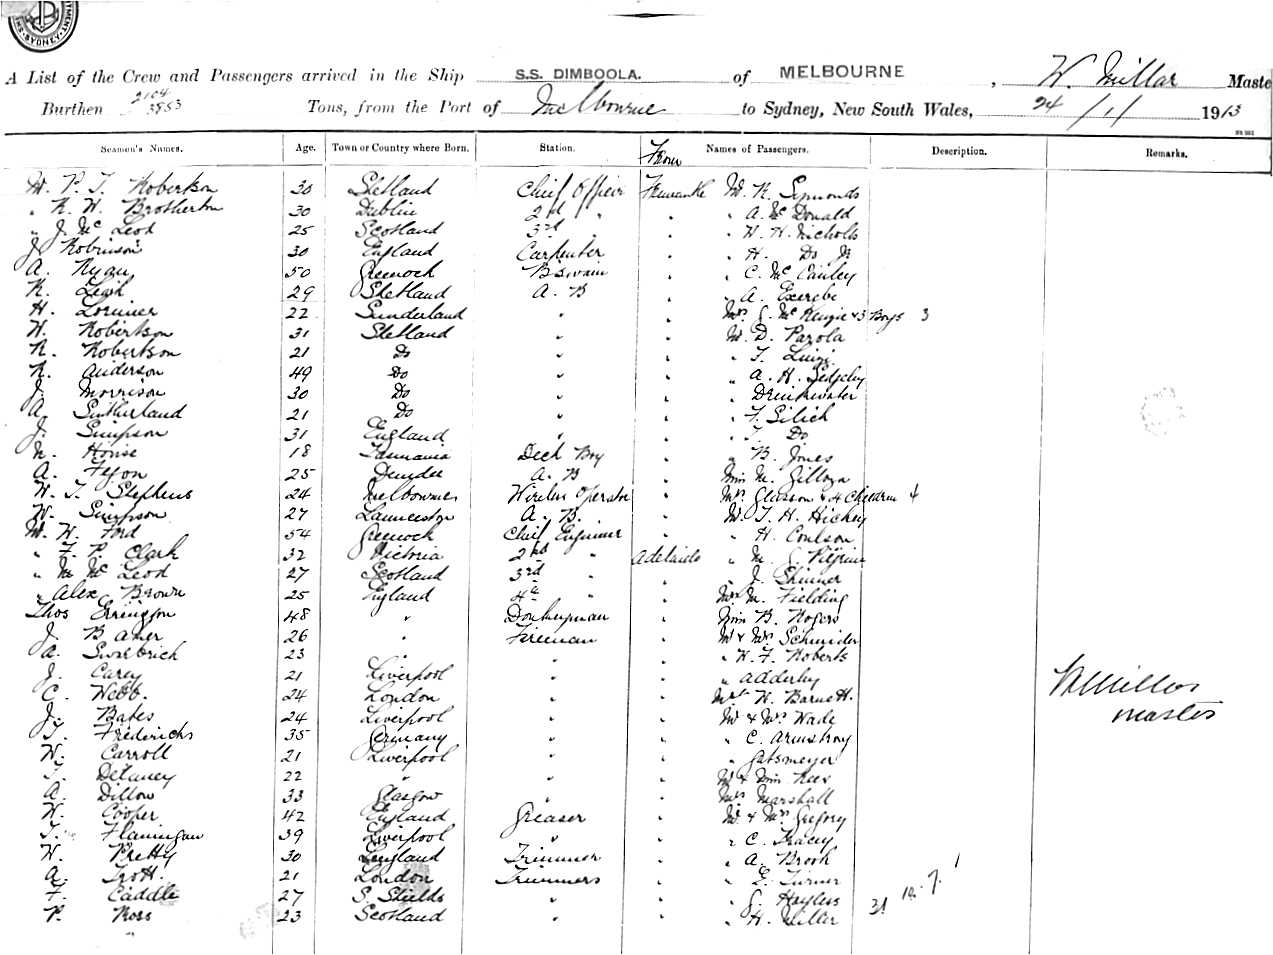 SYDNEY
A List of the Crew and Passengers arrived in the Ship S.S. DIMBOOLA. of MELBOURNE, W. Millar Maste
Burthen 2104 3853 Tons, from the Port of Melbourne to Sydney, New South Wales, 24/1/1913
Seamen's Names. Age. Town or Country where Born. Station. From Names of Passengers. Description. Remarks.
W. P. T. Robertson 30 Shetland Chief Officer Fremantle Mr. R. Symonds
" R. W. Brotherton 30 Dublin 2nd " " " A. McDonald
" J. McLeod 25 Scotland 3rd " " " H. H. Nicholls
J. Robinson 30 England Carpenter " " H. Do Jr
A. Ryan 50 Greenock BSwain " " C. McCauley
R. Leask 29 Shetland A. B " " A. Exergbe
H. Lorimer 22 Sunderland " " Mrs J. McKenzie & 3 Boys 3
W. Robertson 31 Shetland " " Mr. D. Parola
R. Robertson 21 Do " " " T. Luizi
R. Anderson 49 Do " " " A. H. Sedgley
J. Morrison 30 Do " " " Drinkwater
A. Sutherland 21 Do " " " F. Silich
J. Simpson 31 England " " " T. Do
N. House 18 Tasmania Deck Boy " " B. Jones
A. Fyon 25 Dundee A. B " Miss M. Gilloza
W. T. Stephens 24 Melbourne Wireless Operator " Mrs Gleason & 4 Children 4
W. Simpson 27 Launceston A. B. " Mr. T. H. Hickey
Mr. W. Ford 54 Greenock Chief Engineer " " H. Coulson
" F. P. Clark 32 Victoria 2nd " Adelaide " M. J. Pilgrim
" M. McLeod 27 Scotland 3rd " " " J. Skinner
" Alex Brown 25 England 4th " " Mrs M. Fielding
Thos Errington 48 " Donkeyman " Miss B. Rogers
J. Baker 26 " Fireman " Mr & Mrs Schneider
A. Swarbrick 23 " " " " W. F. Roberts
J. Carey 21 Liverpool " " " Adderley
C. Webb. 24 London " " Mrs W. Barnett.
J. Bates 24 Liverpool " " Mr & Mrs Wade
T. Frederichs 35 Germany " " " C. Armstrong
W. Carroll 21 Liverpool " " " Gatsmeyer
T. Delaney 22 " " " Mr & Miss Rees
A. Dillon 33 Glasgow " " Mrs Marshall
W. Cooper 42 England Greaser " Mr. & Mrs Gregory
T. Flannigan 39 Liverpool " " " C. Tracey
W. Pretty 30 England Trimmer " " A. Brook
A. Trott. 21 London Trimmers " " E. Turner
F. Caddle 27 S. Shields " " " G. Hayless
P. Ross 23 Scotland " " " H. Miller
W Millar
master